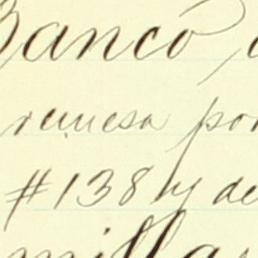 Banco
remesa por
#138 y de
millar